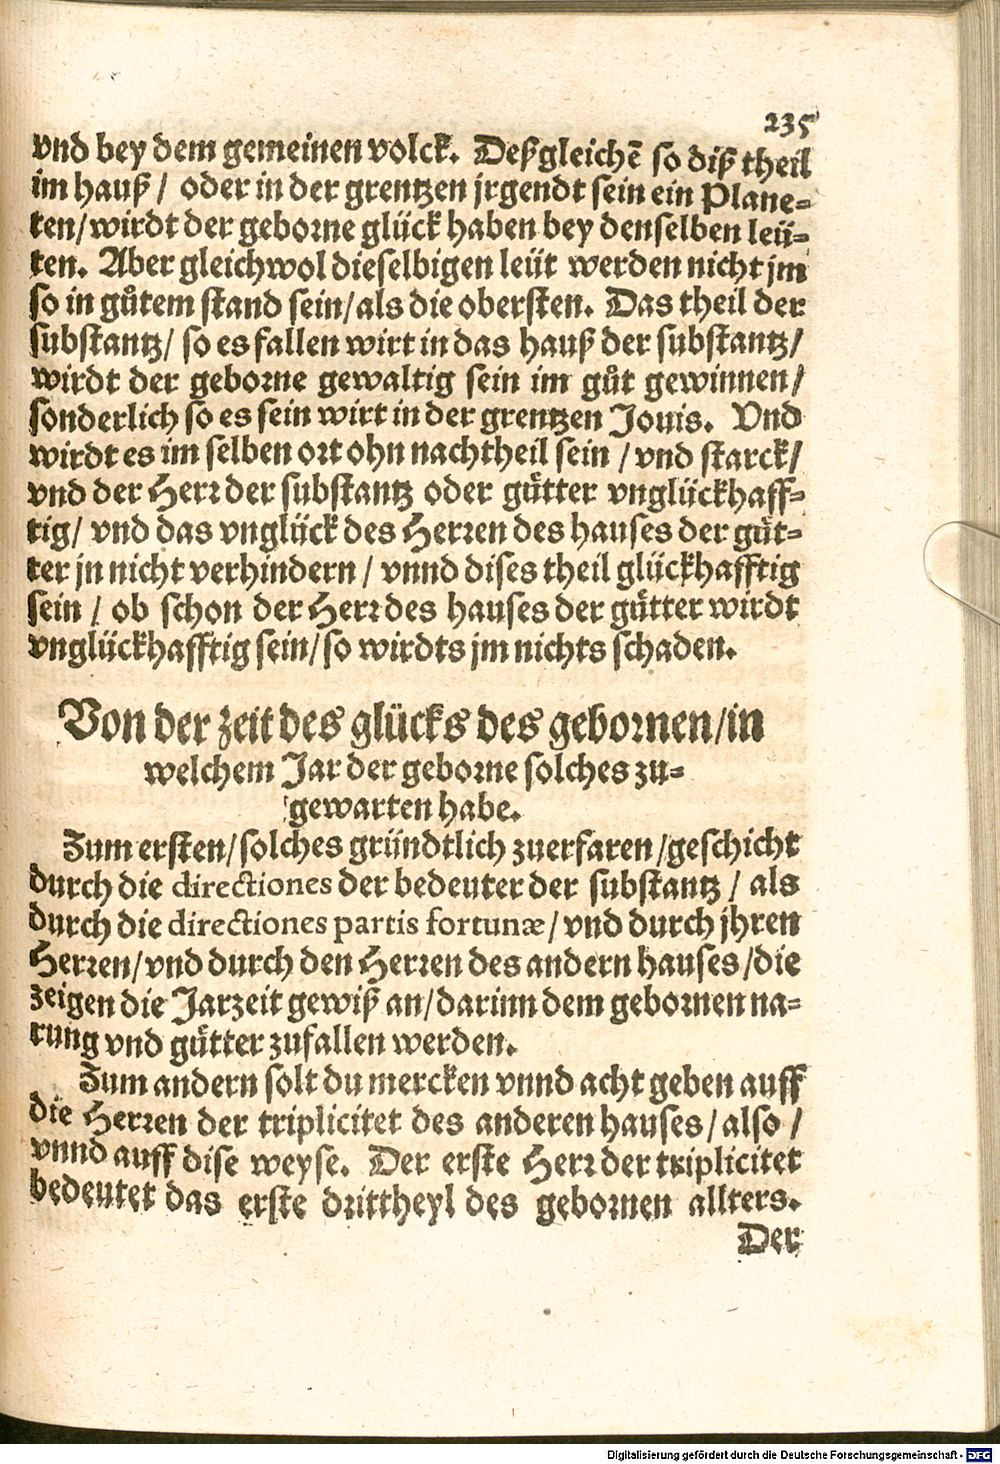 235
vnd bey dem gemeinen volck. Deßgleichē so diß theil
im hauß / oder in der grentzen jrgendt sein ein Plane-
ten/wirdt der geborne glück haben bey denselben leü-
ten. Aber gleichwol dieselbigen leüt werden nicht jm
so in gůtem stand sein/als die obersten. Das theil der
substantz/ so es fallen wirt in das hauß der substantz/
wirdt der geborne gewaltig sein im gůt gewinnen/
sonderlich so es sein wirt in der grentzen Jouis. Vnd
wirdt es im selben ort ohn nachtheil sein / vnd starck/
vnd der Herr der substantz oder gůtter vnglückhaff-
tig/ vnd das vnglück des Herren des hauses der gůt-
ter jn nicht verhindern / vnnd dises theil glückhafftig
sein / ob schon der Herr des hauses der gůtter wirdt
vnglückhafftig sein/so wirdts jm nichts schaden.
Von der zeit des glücks des gebornen/in
welchem Jar der geborne solches zu-
gewarten habe.
Zum ersten/solches gründtlich zuerfaren/geschicht
durch die directiones der bedeuter der substantz / als
durch die directiones partis fortunæ/ vnd durch jhren
Herren/vnd durch den Herren des andern hauses/die
zeigen die Jarzeit gewiß an/darinn dem gebornen na-
rung vnd gůtter zufallen werden.
Zum andern solt du mercken vnnd acht geben auff
die Herren der triplicitet des anderen hauses/ also /
vnnd auff dise weyse. Der erste Herr der triplicitet
bedeutet das erste drittheyl des gebornen allters.
Der
Digitalisierung gefördert durch die Deutsche Forschungsgemeinschaft - DFG